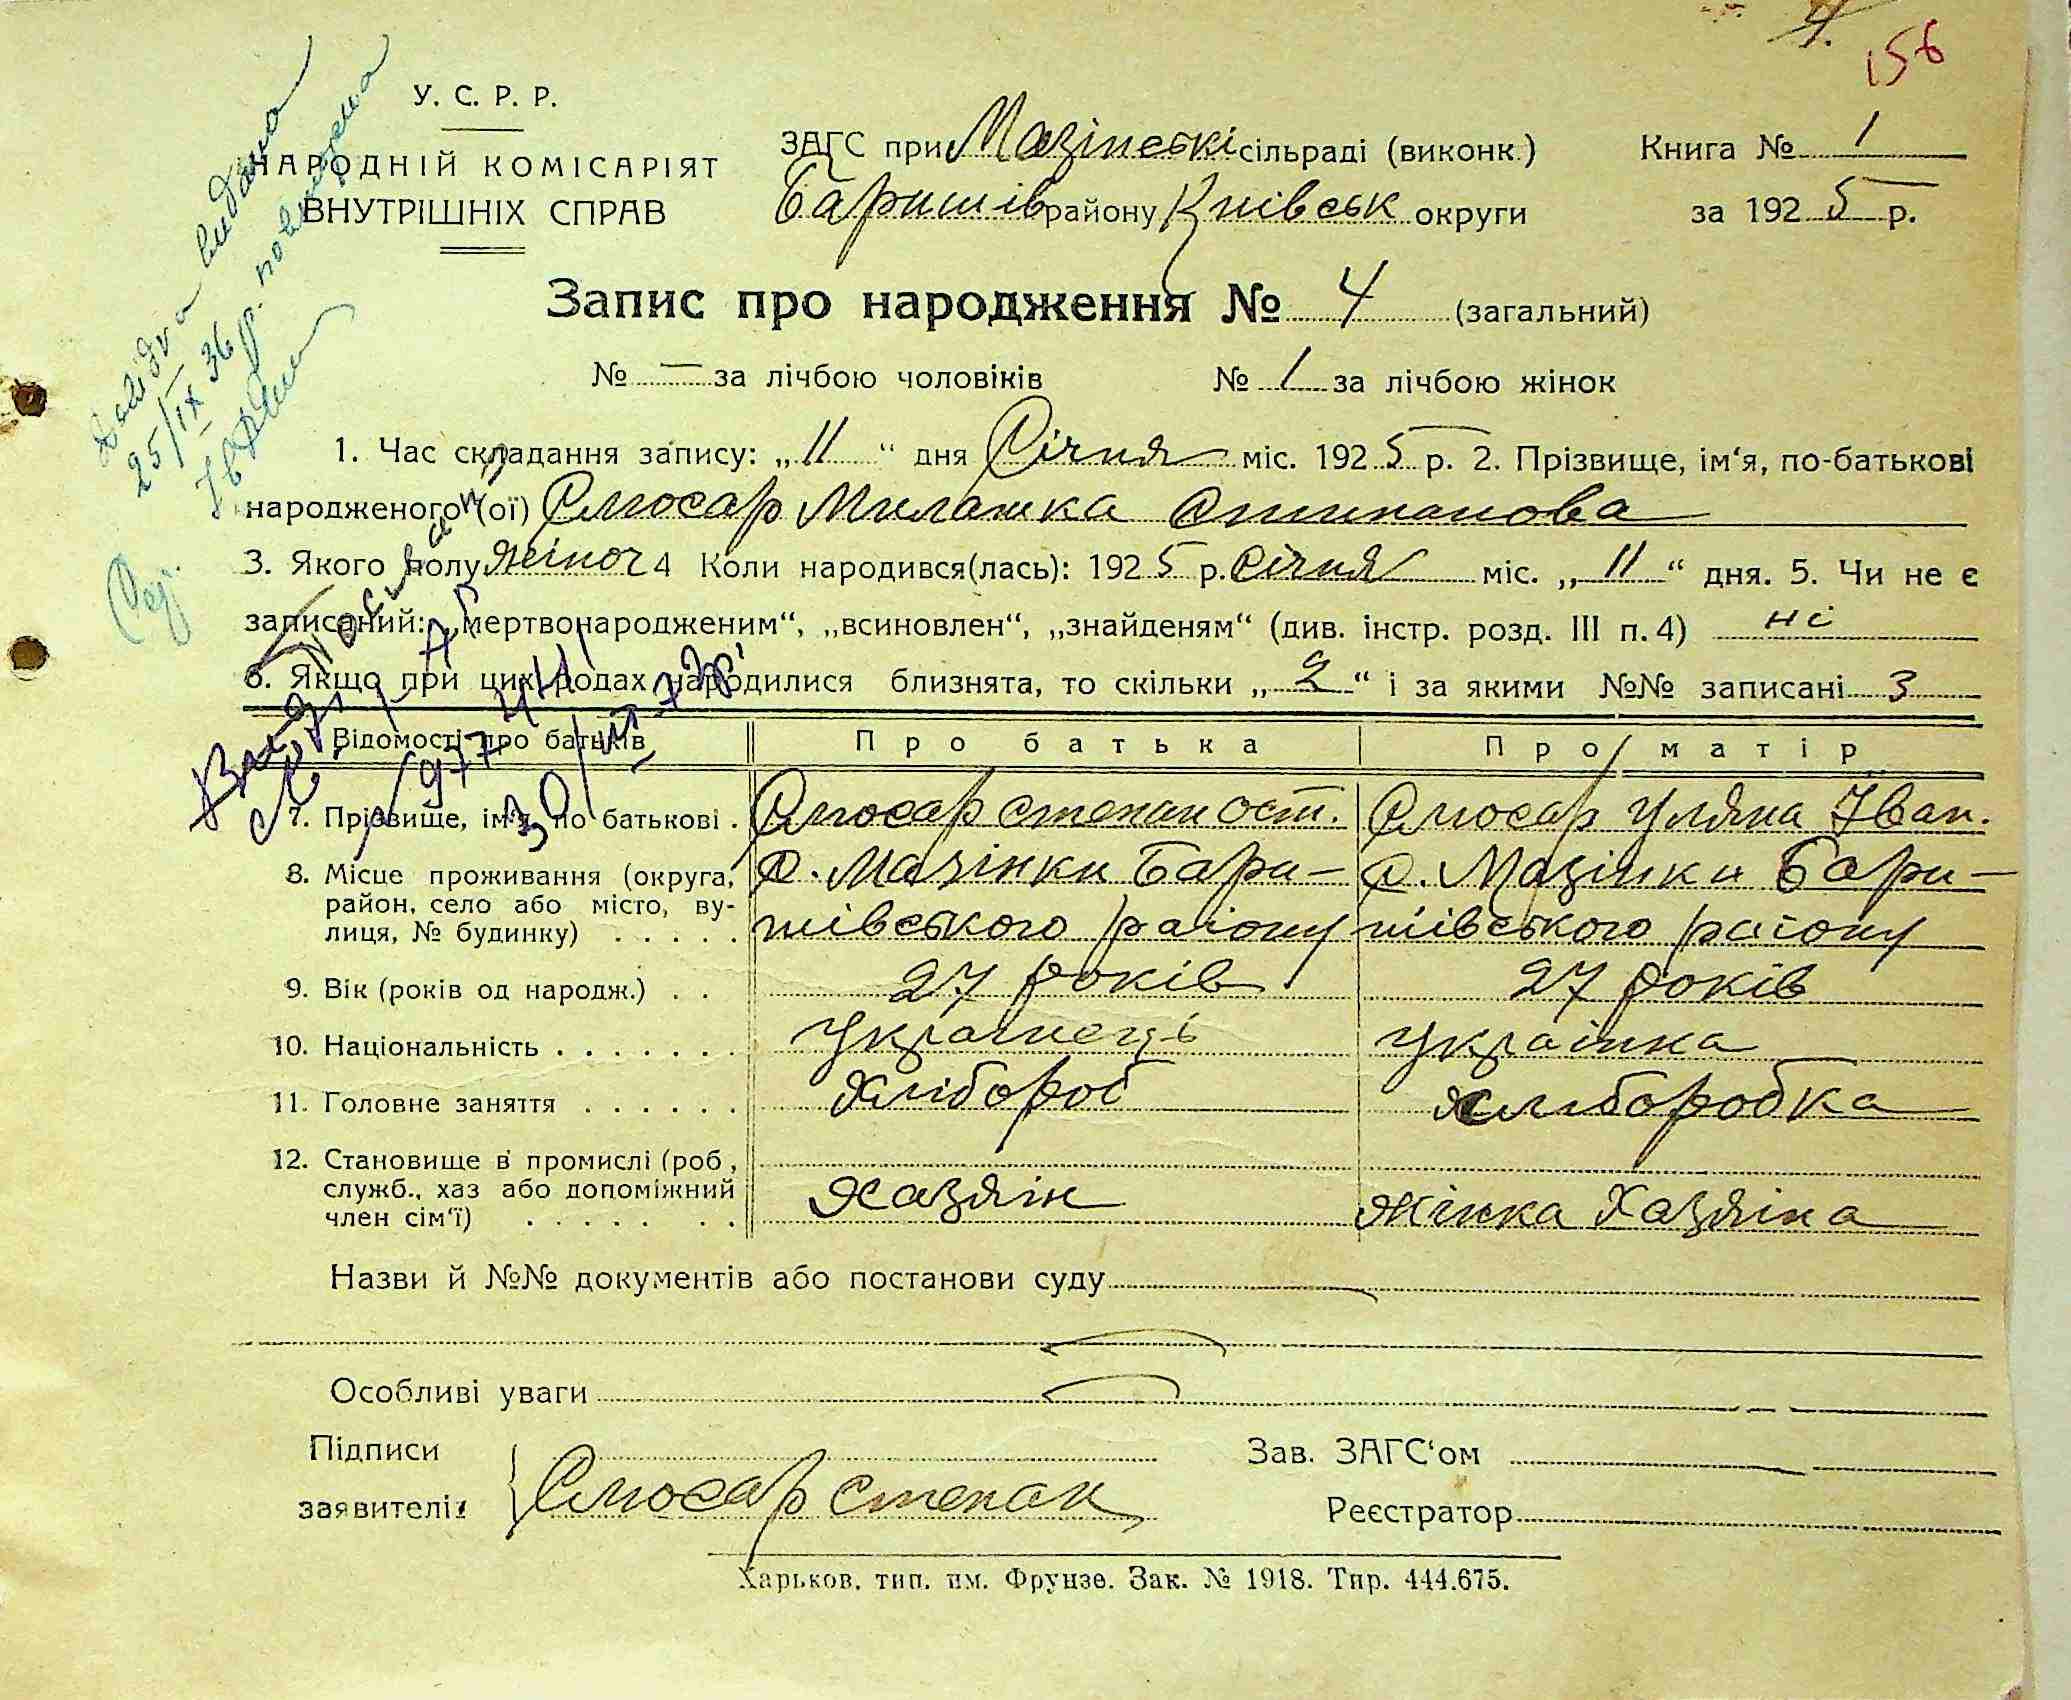 4.
156
У. С. Р. Р.
НАРОДНІЙ КОМІСАРІЯТ
ВНУТРІШНІХ СПРАВ
ЗАГС при Мазінські сільраді (виконк.)
Баришів району Київськ округи
Книга № 1
за 1925 р.
Запис про народження № 4 (загальний)
№ — за лічбою чоловіків № 1 за лічбою жінок
1. Час складання запису: „11“ дня Січня міс. 1925 р. 2. Прізвище, ім‘я, по-батькові
народженого (ої) Слюсар Милашка Степанова
3. Якого полу жіноч 4 Коли народився(лась): 1925 р. січня міс. „11“ дня. 5. Чи не є
записаний: „мертвонародженим“, „всиновлен“, „знайденям“ (див. інстр. розд. III п. 4) ні
6. Якщо при цих родах народилися близнята, то скільки „2“ і за якими №№ записані 3
Відомості про батьків Про батька Про матір
7. Прізвище, ім‘я, по батькові. Слюсар Степан Ост. Слюсар Уляна Іван.
8. Місце проживання (округа, С. Мазінки Бари- С. Мазінки Бари-
район, село або місто, ву-
лиця, № будинку) . . . . . шівського раіону шівського раіону
9. Вік (років од народж.) . . 27 років 27 років
10. Національність . . . . . . . Украінець Украінка
11. Головне заняття . . . . . . Хлібороб Хліборобка
12. Становище в промислі (роб,
служб., хаз або допоміжний Хазяін Жінка Хазяіна
член сім‘ї) . . . . . . . .
Назви й №№ документів або постанови суду
Особливі уваги
Підписи
заявителів Слюсар Степан
Зав. ЗАГС‘ом
Реєстратор
Харьков, тип. им. Фрунзе. Зак. № 1918. Тир. 444.675.
видана
25/IX 36 р.
30/III-7